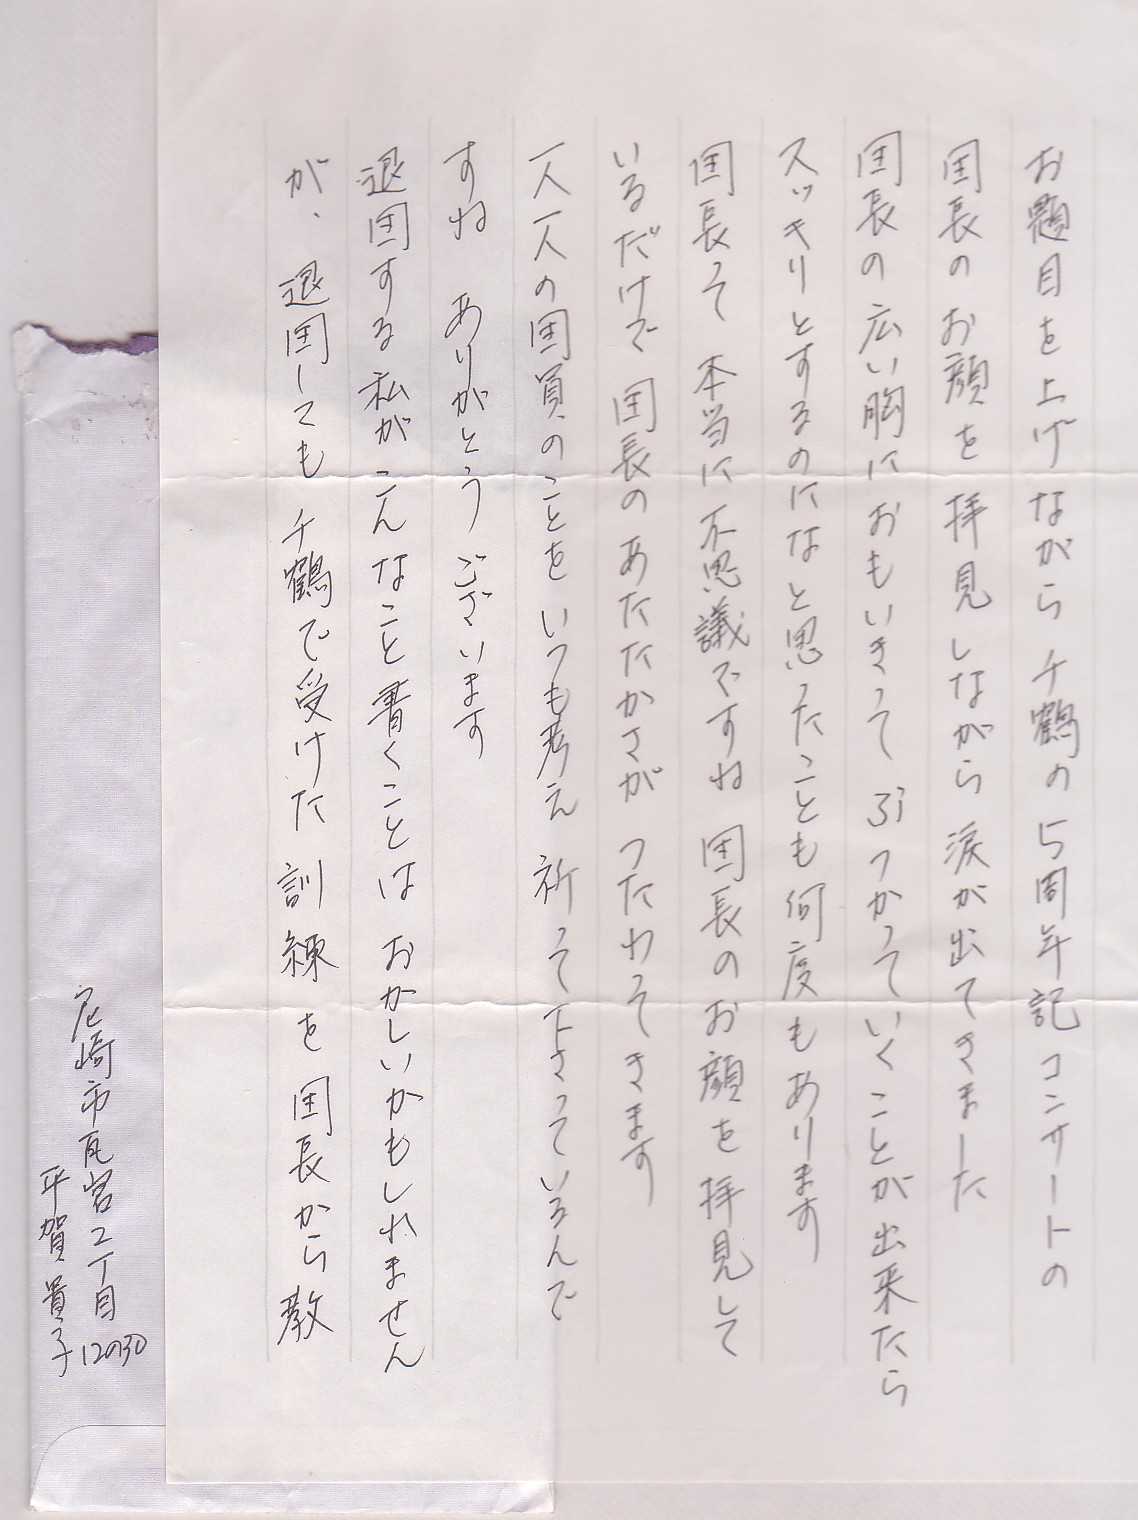 お題目を上げながら 千鶴の5周年記コンサートの
団長のお顔を 拝見しながら 涙が出てきました
団長の広い胸に おもいきって ぶつかっていくことが出来たら
スッキリとするのになと思ったことも何度もあります
団長って 本当に不思議ですね 団長のお顔を拝見して
いるだけで 団長のあたたかさが つたわってきます
一人一人の団員のことを いつも考え 祈って下さっているんで
すね ありがとうございます
退団する私がこんなこと書くことは おかしいかもしれません
が、退団しても 千鶴で受けた 訓練を団長から教
尼崎市瓦宮2丁目12の30
平賀貴子